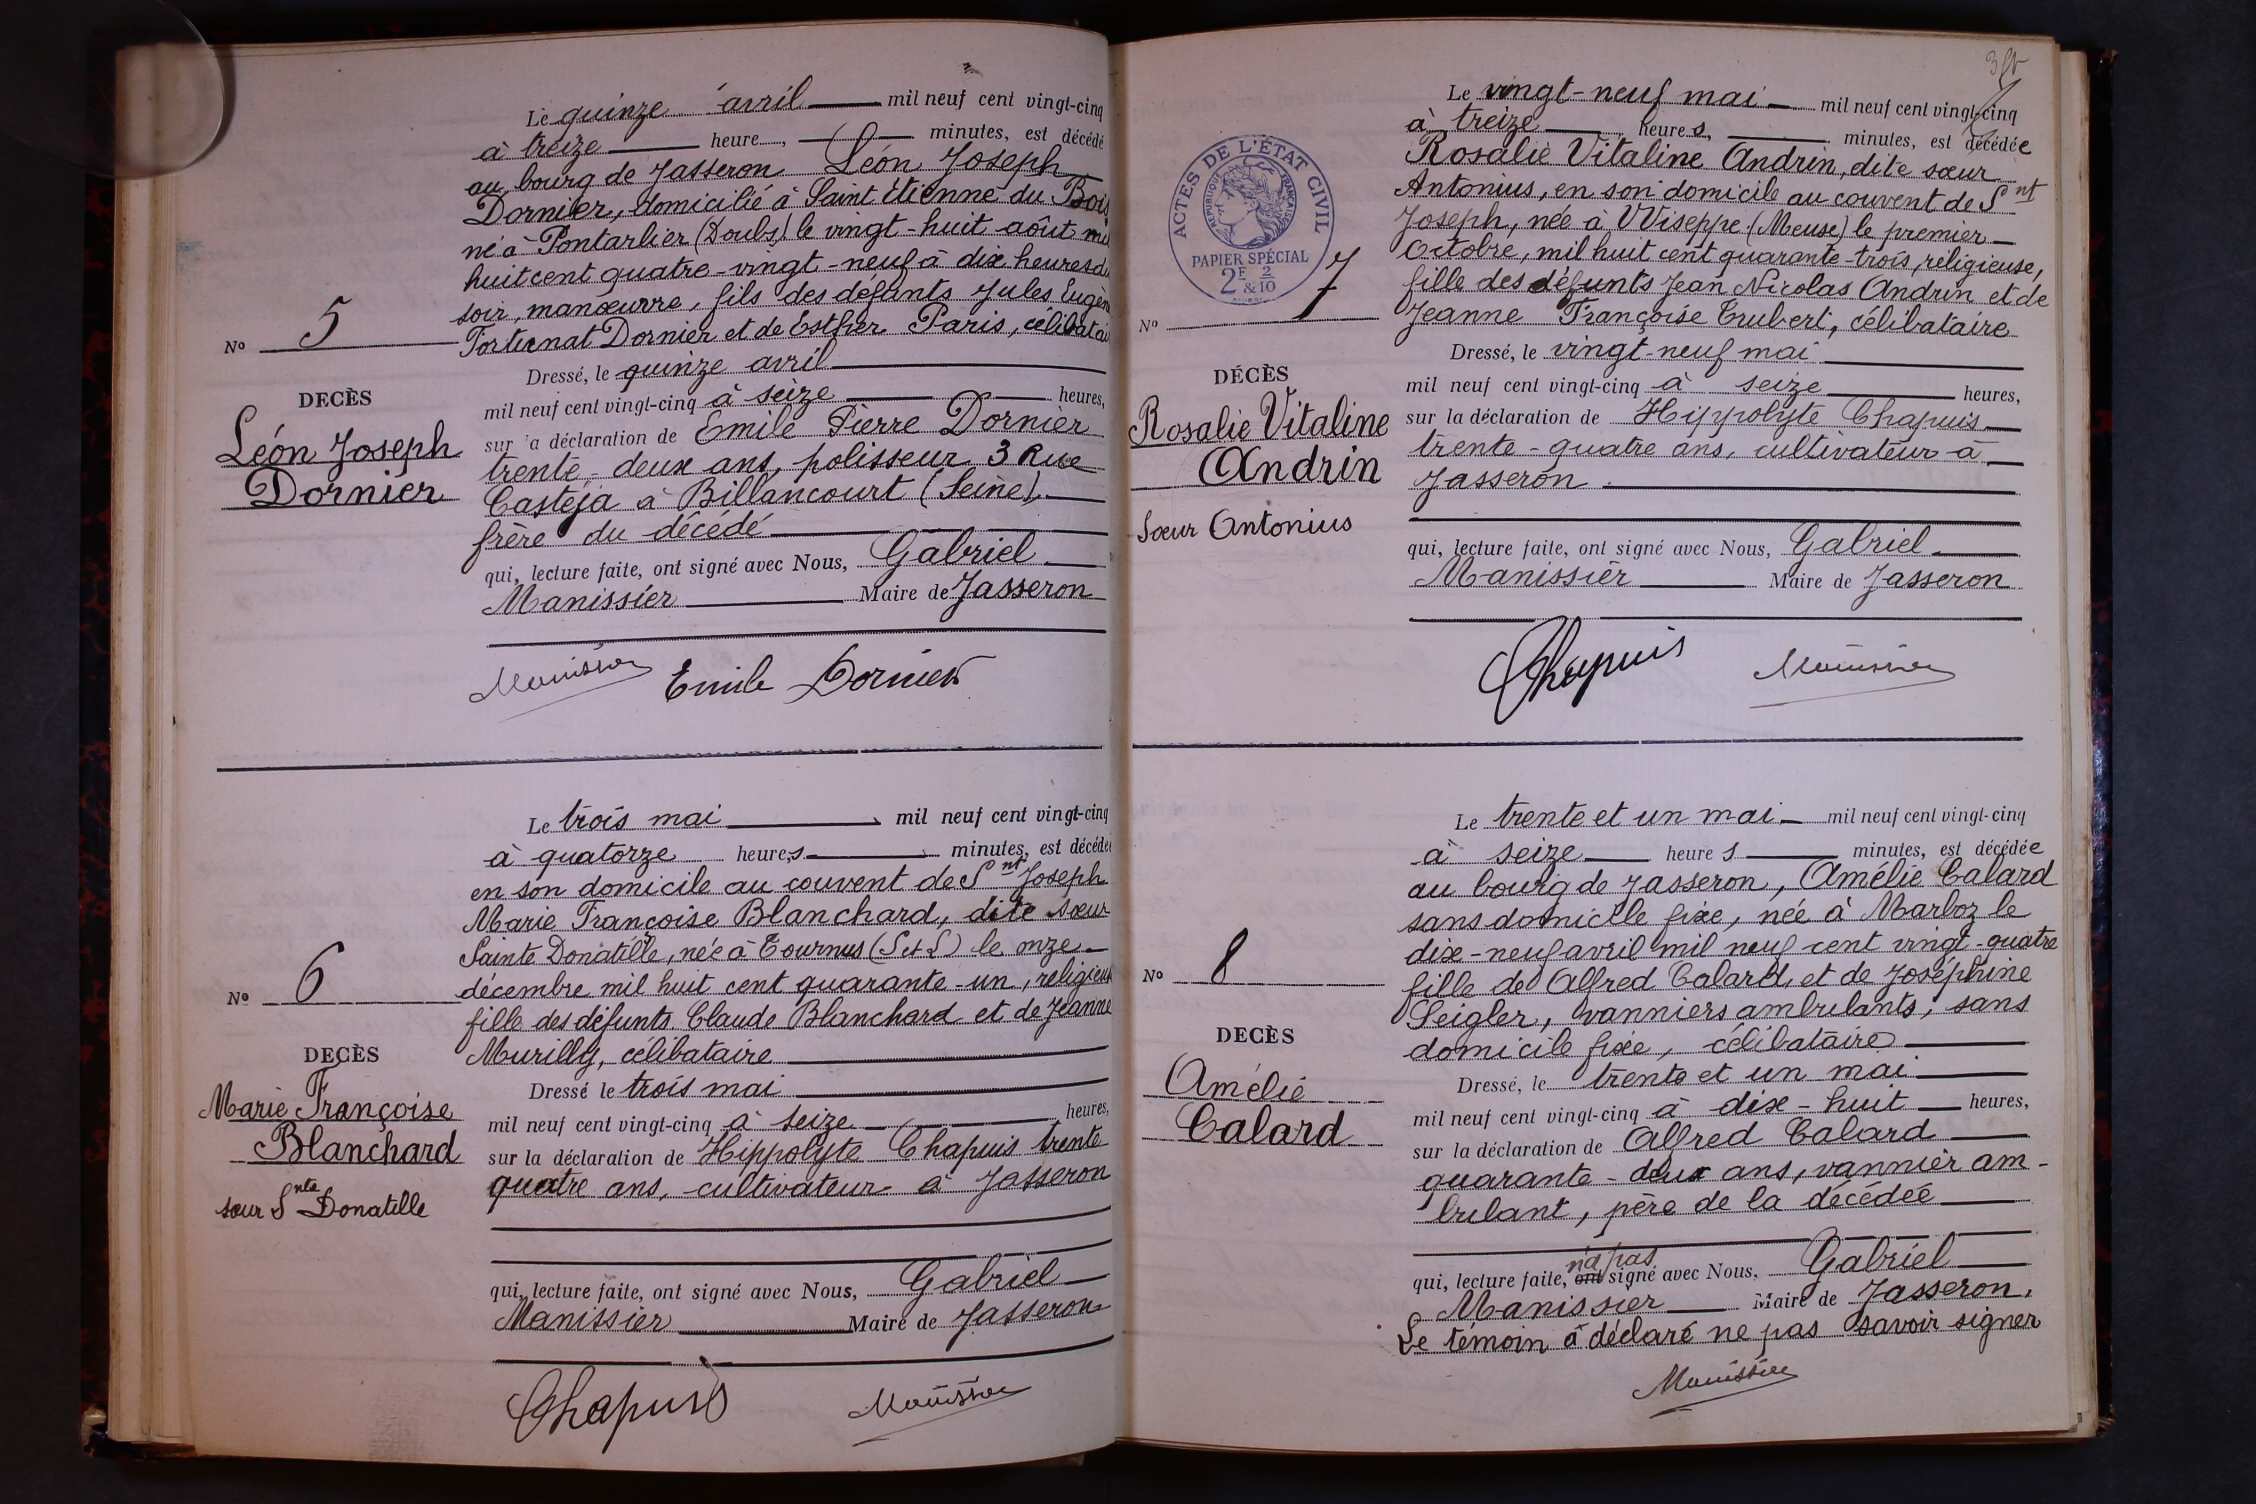 Le quinze avril mil neuf cent vingt-cinq
à treize heure, minutes, est décédé
au bourg de Jasseron Léon Joseph
Dornier, domicilié à Saint Etienne du Bois
né à Pontarlier (Doubs) le vingt-huit août mil
huit cent quatre-vingt-neuf à dix heures du
soir, manœuvre, fils des défunts Jules Eugène
Fortunat Dornier et de Esther Paris, célibatai
Dressé, le quinze avril
mil neuf cent vingt-cinq à seize heures,
sur la déclaration de Emile Pierre Dornier
trente-deux ans, polisseur 3 Rue
Casteja à Billancourt (Seine)
frère du décédé
qui, lecture faite, ont signé avec Nous, Gabriel
Manissier Maire de Jasseron
Manissier Emile Dornier
No 5
DECÈS
Léon Joseph
Dornier
Le trois mai mil neuf cent vingt-cinq
à quatorze heures minutes, est décédée
en son domicile au couvent de Snt Joseph
Marie Françoise Blanchard, dite sœur
Sainte Donatille, née à Tournus (S et L) le onze
décembre mil huit cent quarante-un, religieus
fille des défunts Claude Blanchard et de Jeanne
Murilly, célibataire
Dressé le trois mai
mil neuf cent vingt-cinq à seize heures,
sur la déclaration de Hippolyte Chapuis trente
quatre ans, cultivateur à Jasseron
qui, lecture faite, ont signé avec Nous, Gabriel
Manissier Maire de Jasseron
Chapuis Manissier
No 6
DECÈS
Marie Françoise
Blanchard
sœur Snte Donatille
Le vingt-neuf mai mil neuf cent vingt-cinq
à treize heures, minutes, est décédée
Rosalie Vitaline Andrin, dite sœur
Antonius, en son domicile au couvent de Snt
Joseph, née à Wiseppe (Meuse) le premier
Octobre, mil huit cent quarante-trois, religieuse,
fille des défunts Jean Nicolas Andrin et de
Jeanne Françoise Trubert, célibataire
Dressé, le vingt-neuf mai
mil neuf cent vingt-cinq à seize heures,
sur la déclaration de Hippolyte Chapuis
trente-quatre ans, cultivateur à
Jasseron
qui, lecture faite, ont signé avec Nous, Gabriel
Manissier Maire de Jasseron
Chapuis Manissier
ACTES DE L'ÉTAT CIVIL
RÉPUBLIQUE FRANÇAISE
PAPIER SPÉCIAL
2F & 2/10
No 7
DÉCÈS
Rosalie Vitaline
Andrin
Sœur Antonius
Le trente et un mai mil neuf cent vingt-cinq
à seize heures minutes, est décédée
au bourg de Jasseron, Amélie Calard
sans domicile fixe, née à Marboz le
dix-neuf avril mil neuf cent vingt-quatre
fille de Alfred Calard, et de Joséphine
Seigler, vanniers ambulants, sans
domicile fixe, célibataire
Dressé, le trente et un mai
mil neuf cent vingt-cinq à dix-huit heures,
sur la déclaration de Alfred Calard
quarante-deux ans, vannier am-
bulant, père de la décédée
n'a pas
qui, lecture faite, ont signé avec Nous, Gabriel
Manissier Maire de Jasseron.
Le témoin a déclaré ne pas savoir signer
Manissier
No 8
DECÈS
Amélie
Calard